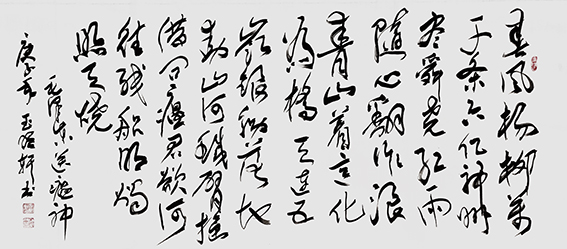 春風楊柳萬
千条六亿神州
尽舜尧红雨
随心翻作浪
青山着意化
为橋天连五
岭银锄落地
动山河铁臂摇
借问瘟君欲何
往纸船明烛
照天烧
毛泽东送瘟神
庚子年
轩书